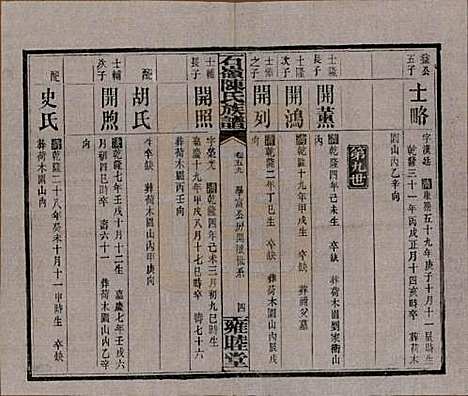 益公
五子
士略
字漢廷 康熙五十九年庚子十月十一
乾隆三十一年丙戌正月十四亥時卒 葬荷木
園山內乙辛向
第九世
士隆
長子
開薰
乾隆四年己未生 卒缺 葬荷木園山劉家衝山
士隆
次子
開鴻
乾隆十九年甲戌生 卒缺
士隆
之子
開列
乾隆二年丁巳生 卒缺 葬荷木園山內辰戌
向
石嶺陳氏族譜
卷五九
學富公房開樸派系
四
雍睦堂
士輔
長子
開照
字榮光 乾隆四年己未三月初九巳時生
嘉慶十九年甲戌八月十七巳時卒 葬荷木園山內
配
胡氏
乾隆 年 生 卒缺 葬荷木園山內甲庚
向
士輔
次子
開煦
乾隆七年壬戌十月十二日生 嘉慶七年壬戌六
月初四巳時卒 壽六十一 葬荷木園山內乙辛
向
配
史氏
乾隆二十八年癸未十月十一甲時生 卒缺
葬荷木園山內